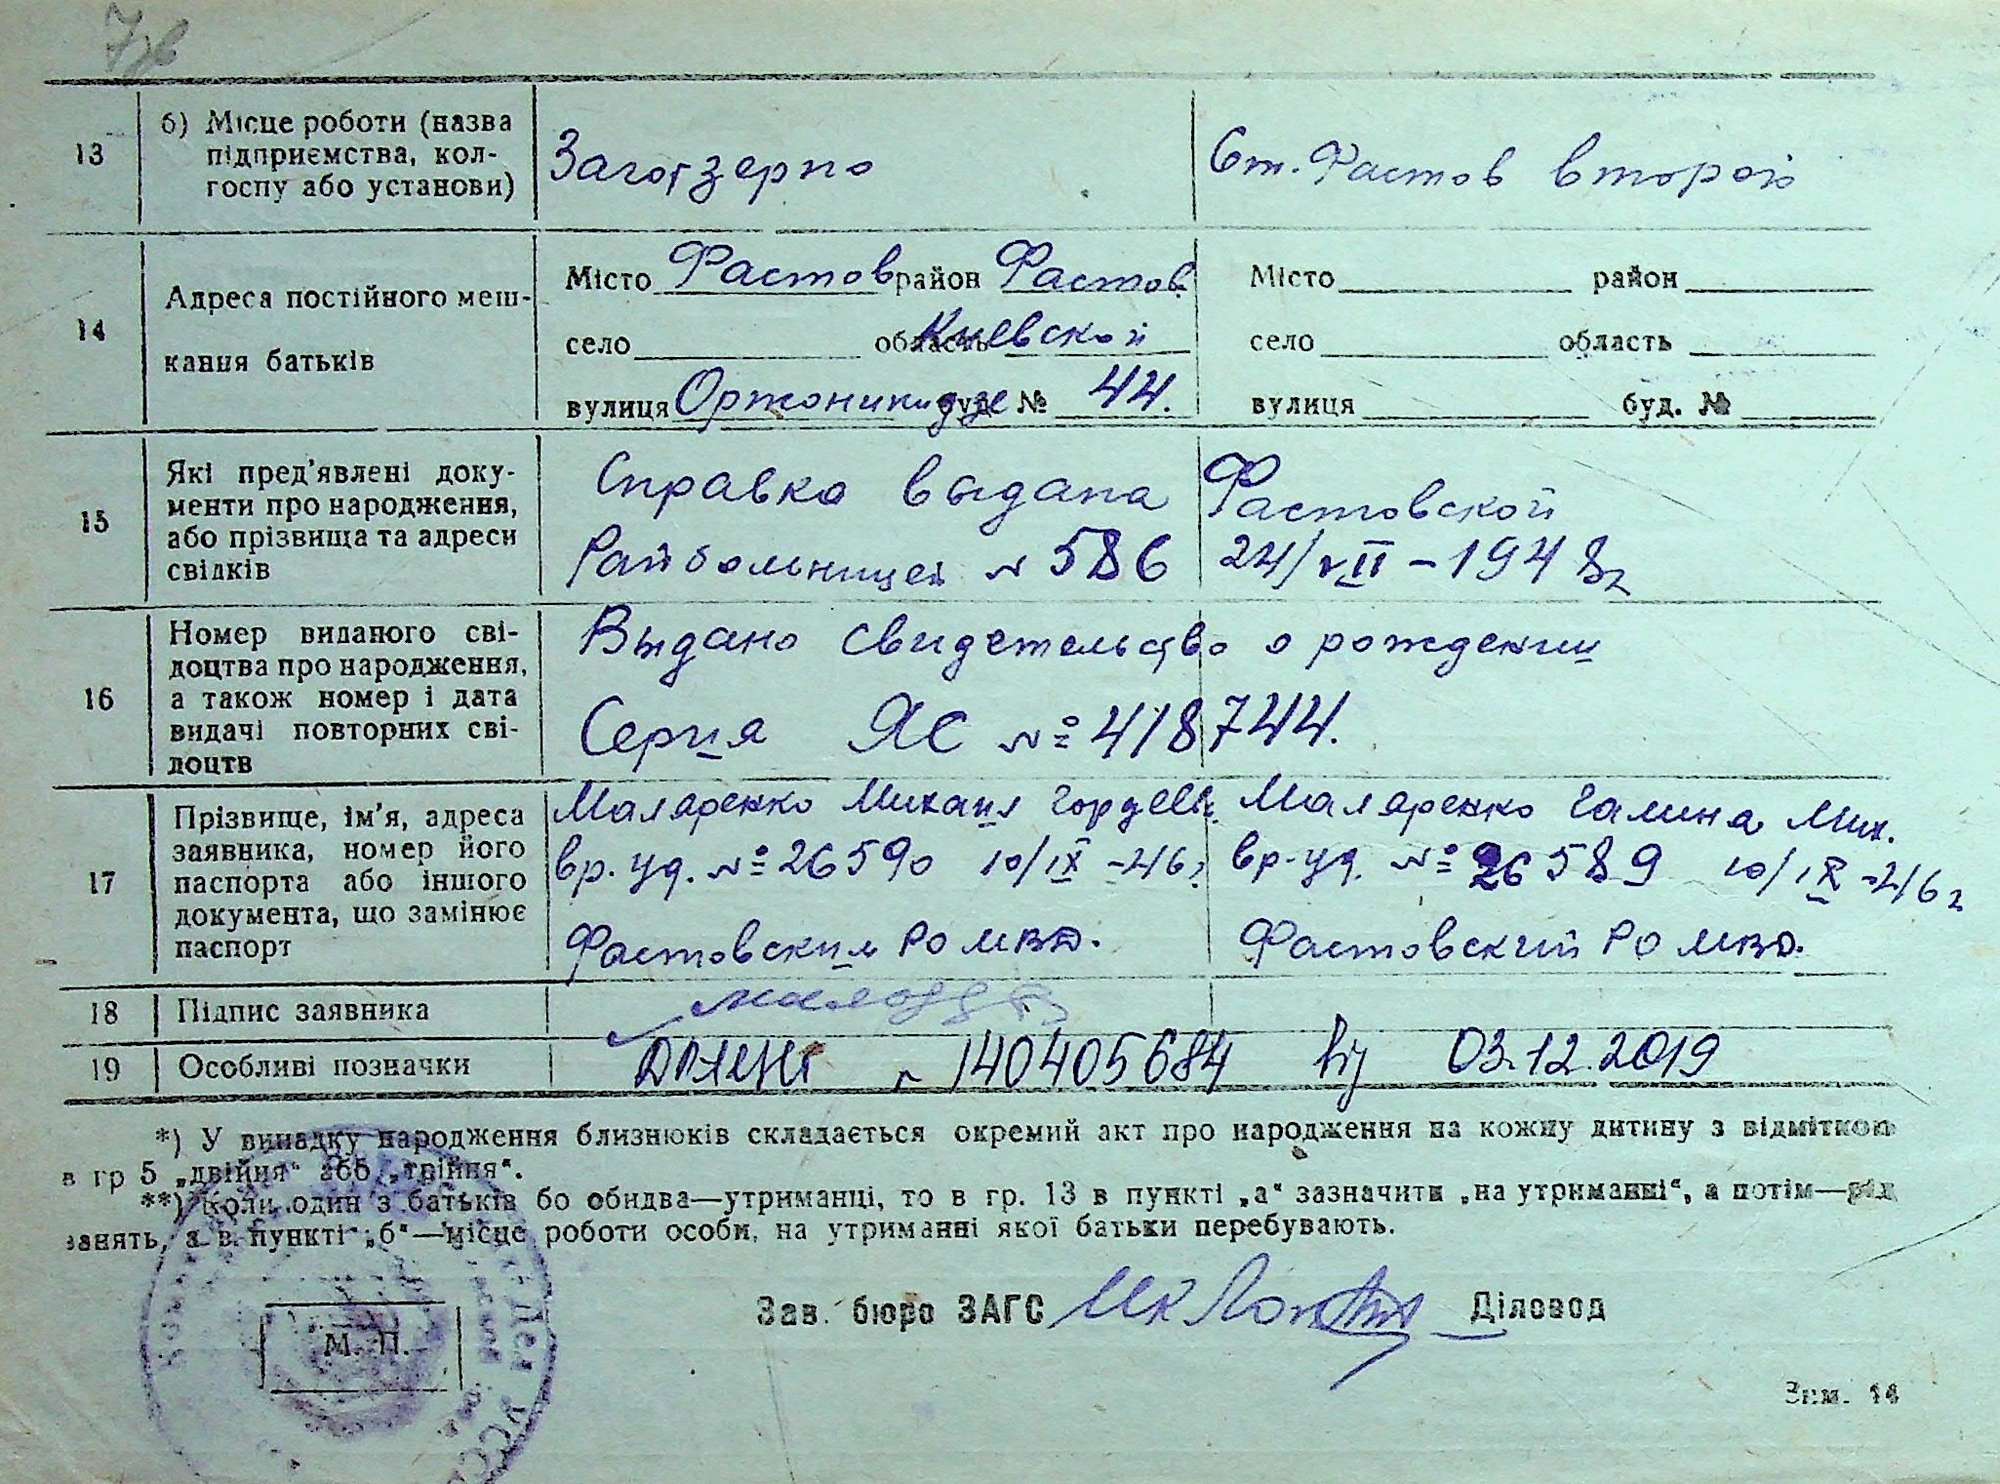 7зв
13
б) Місце роботи (назва
підприємства, кол-
госпу або установи)
Заготзерно
Ст. Фастов второй
14
Адреса постійного меш-
кання батьків
Місто Фастов район Фастов
село область Киевской
вулиця Оржоникидзе буд. № 44.
Місто район
село область
вулиця буд. №
15
Які пред'явлені доку-
менти про народження,
або прізвища та адреси
свідків
Справка выдана Фастовской
Райбольницей № 586 24/VII - 1948 г
16
Номер виданого сві-
доцтва про народження,
а також номер і дата
видачі повторних сві-
доцтв
Выдано свидетельство о рождении
Серия ЯС № 418744.
17
Прізвище, ім'я, адреса
заявника, номер його
паспорта або іншого
документа, що замінює
паспорт
Маляренко Михаил Гордеев.
вр. уд. № 26590 10/IX - 46 г
Фастовским РО МВД.
Маляренко Галина Мих.
вр. уд. № 26589 10/IX - 46 г
Фастовский РО МВД.
18
Підпис заявника
19
Особливі позначки
ДРАЦНГ № 140405684 03.12.2019
*) У випадку народження близнюків складається окремий акт про народження на кожну дитину з відміткою
в гр 5 „двійня“ або „трійня“.
**) Коли один з батьків бо обидва—утриманці, то в гр. 13 в пункті „а“ зазначити „на утриманні“, а потім—рід
занять, а в пункті „б“—місце роботи особи, на утриманні якої батьки перебувають.
М. П.
Зав. бюро ЗАГС Діловод
Зим. 14